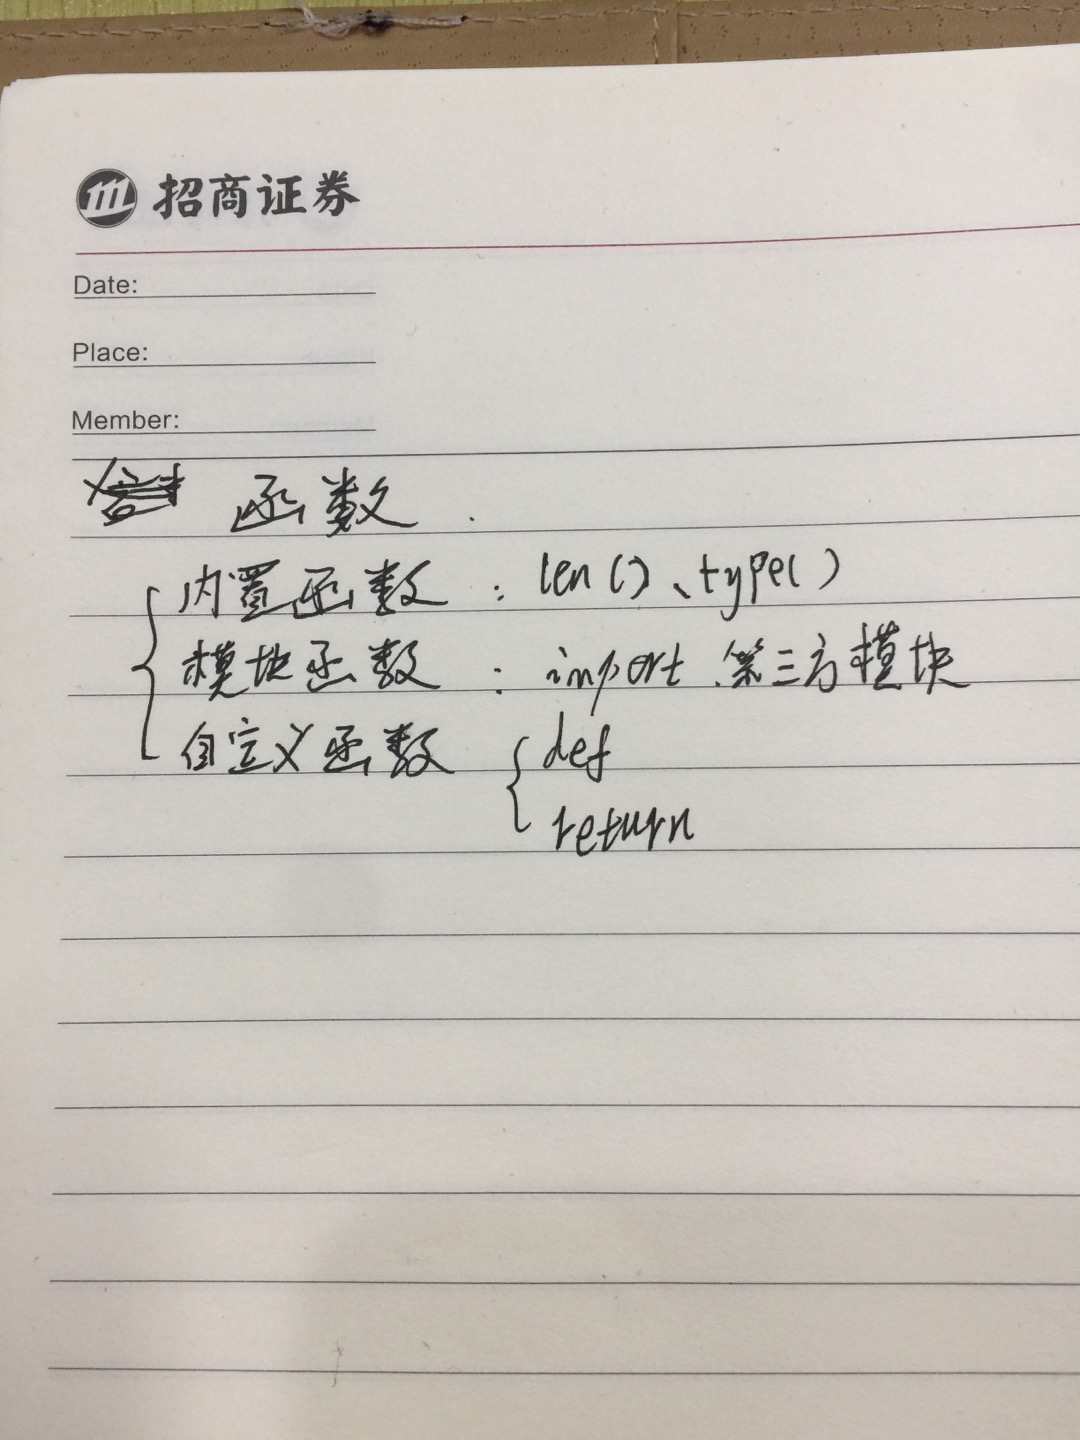 招商证券
Date:
Place:
Member:
函数
内置函数 : len()、type()
模块函数 : import 第三方模块
自定义函数 { def
return